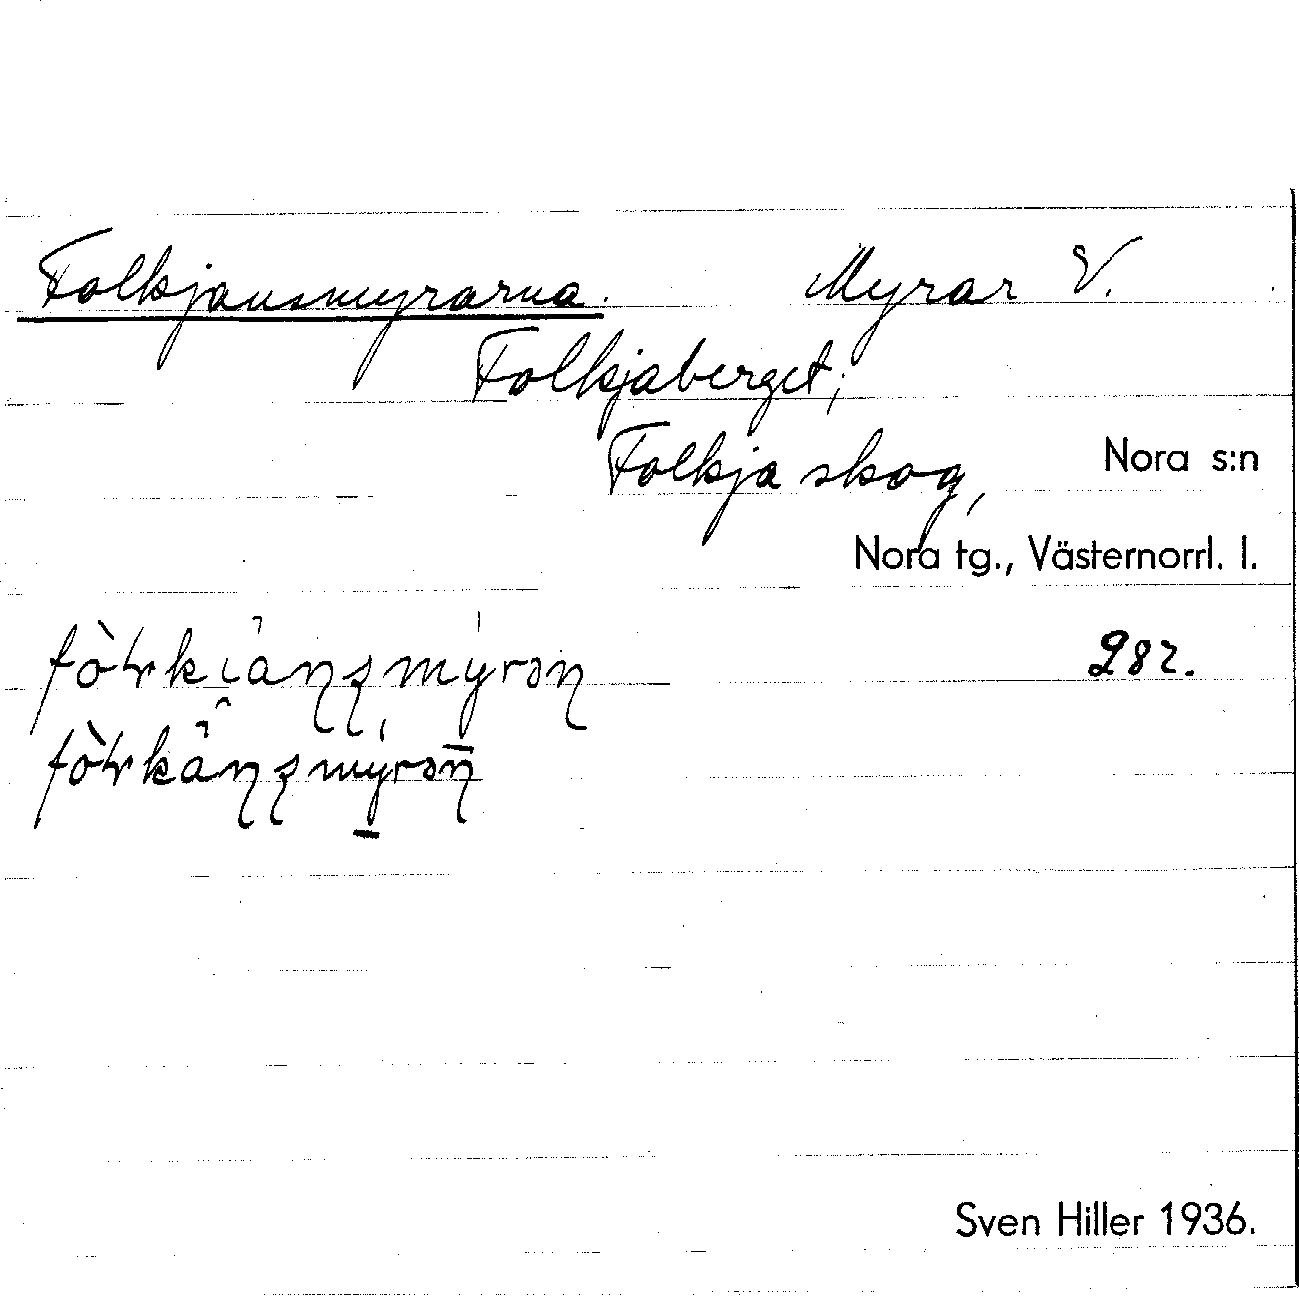 Folkjansmyrarna. Myrar V.
Folkjaberget;
Folkja skog,
Nora s:n
Nora tg., Västernorrl. l.
282.
Sven Hiller 1936.